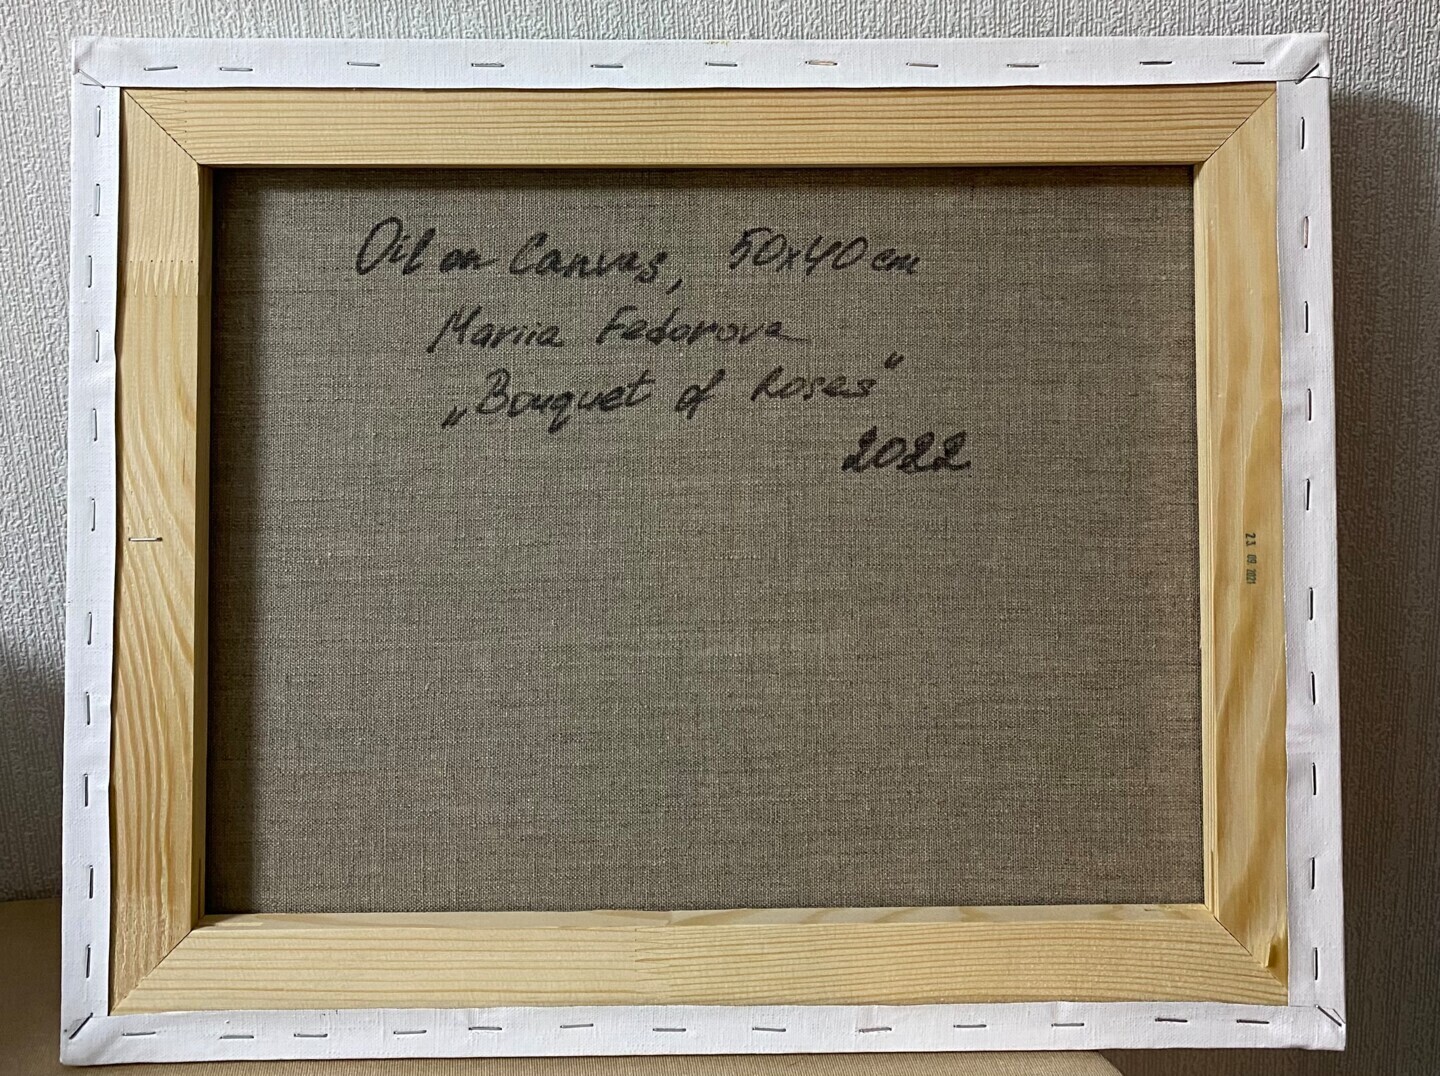 Oil on Canvas, 50x40 cm
Mariia Fedorova
„Bouquet of Roses“
2022
23 09 2021